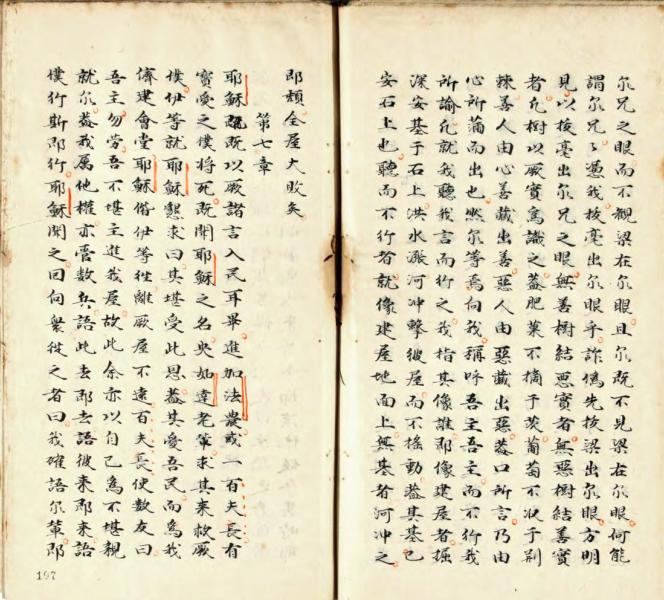 尔兄之眼而不覩梁在尔眼且尔既不見梁在尔眼何能
謂尔兄兄憑我拔毫出尔眼乎詐偽先拔梁出尔眼方明
見以拔毫出尔兄之眼無善樹結惡實者無惡樹結善實
者凢樹以厥實為識之蓋肥菓不摘于茨蔔萄不㧓于荆
棘善人由心善藏出善惡人由惡藏出惡蓋口所言乃由
心所蒲而出也然尔等焉向我稱呼吾主吾主而不行我
所諭凢就我聽我言而行之我指其像誰即像建屋者掘
深安基于石上洪水漲河冲擊彼屋而不搖動蓋其基已
安石上也聽而不行者就像建屋地面上無基者河冲之
即頹全屋大敗矣
第七章
耶穌既以厥諸言入民耳畢進加法農或一百夫長有
寳愛之僕將死既聞耶穌之名央如達老輩求其来救厥
僕伊等就耶穌懇求曰其堪受此恩蓋其愛吾民而為我
儕建會堂耶穌偕伊等徃離厥屋不遠百夫長使數友曰
吾主勿勞吾不堪主進我屋故此余亦以自己為不堪親
就尔蓋我属他權亦𠁅數兵語此去即去語彼来即来語
僕行斯即行耶穌聞之回向衆從之者曰我確語尔輩即
197